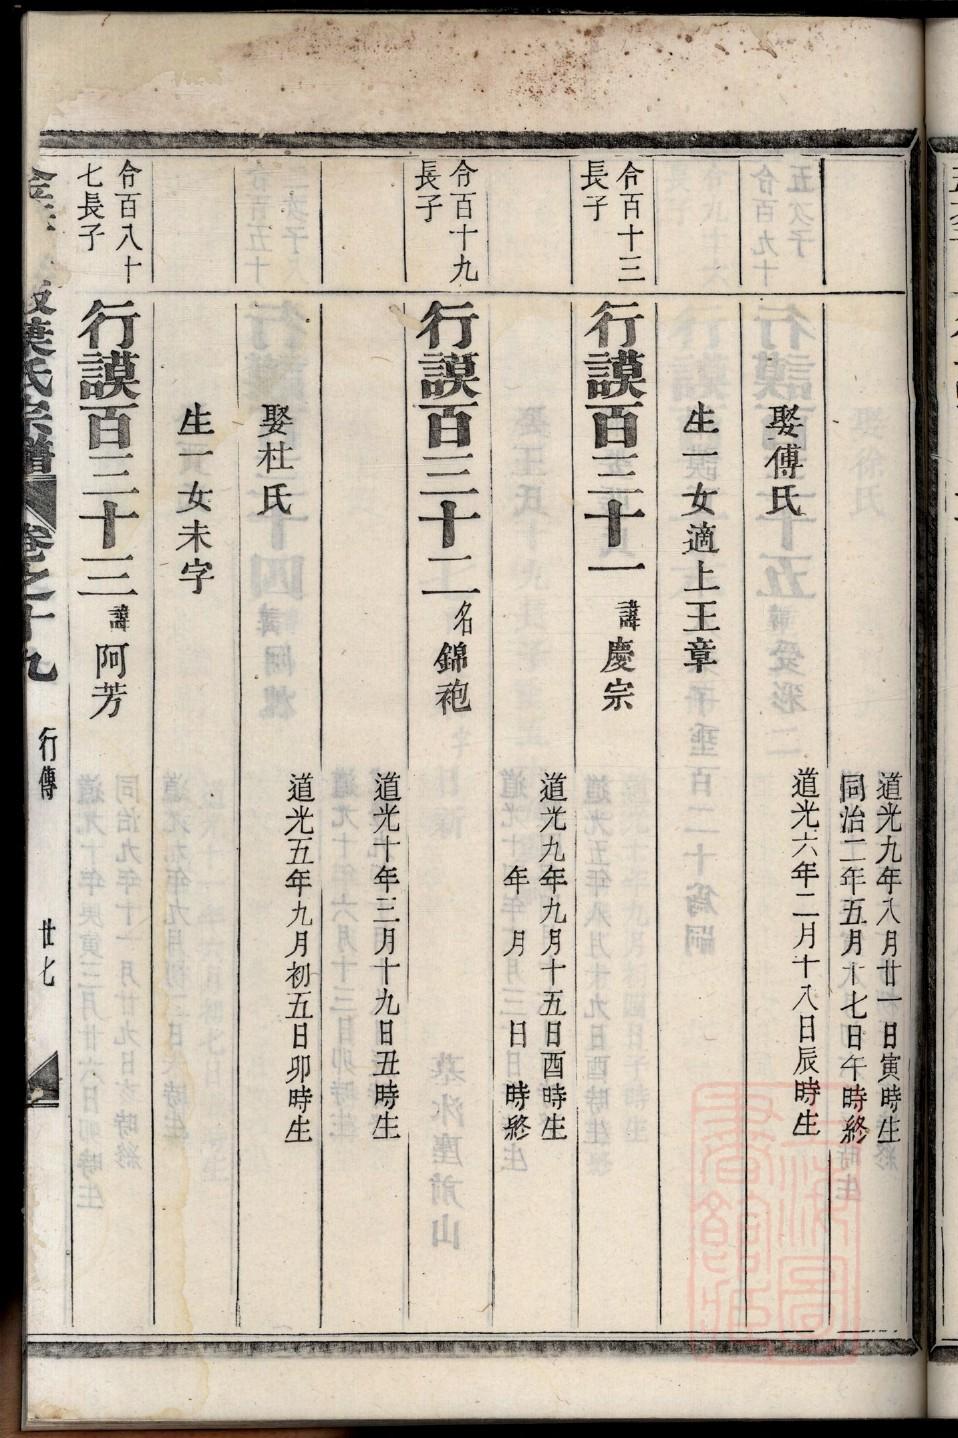 道光九年八月廿一日寅時生
同治二年五月十七日午時終
娶傅氏
道光六年二月十八日辰時生
生一女適上王章
合百十三
長子
行謨百三十一
諱慶宗
道光九年九月十五日酉時生
年月日時終
合百十九
長子
行謨百三十二
名錦袍
道光十年三月十九日丑時生
娶杜氏
道光五年九月初五日卯時生
生一女未字
合百八十
七長子
行謨百三十三
諱阿芳
葉氏宗譜
卷之十九
行傳
廿七